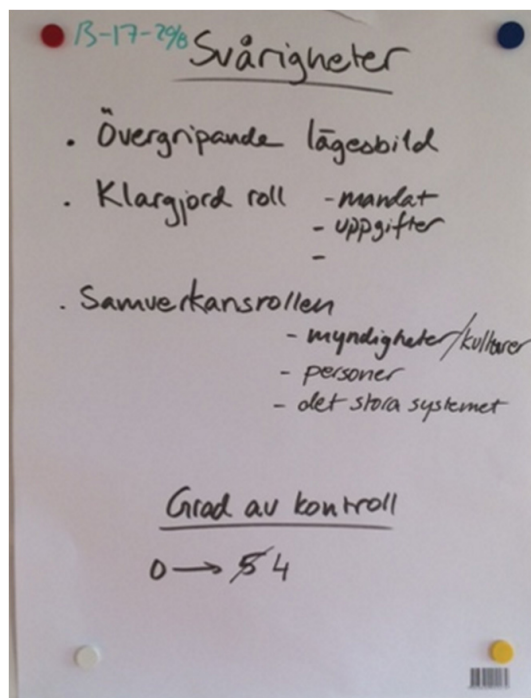 B-17-29/8
Svårigheter
• Övergripande lägesbild
• Klargjord roll - mandat
- uppgifter
-
• Samverkansrollen
- myndigheter/kulturer
- personer
- det stora systemet
Grad av kontroll
0 → 5 4